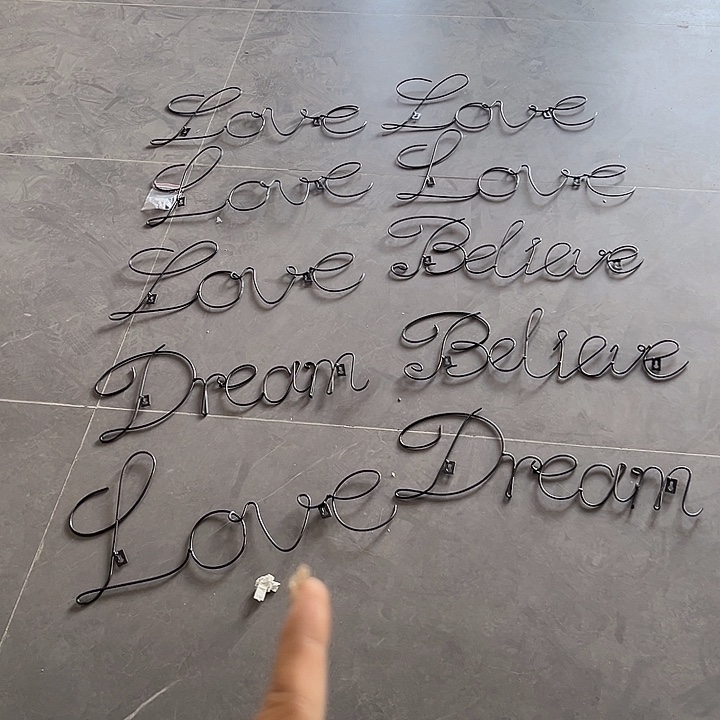 Love Love
Love Love
Love Believe
Dream Believe
Love Dream